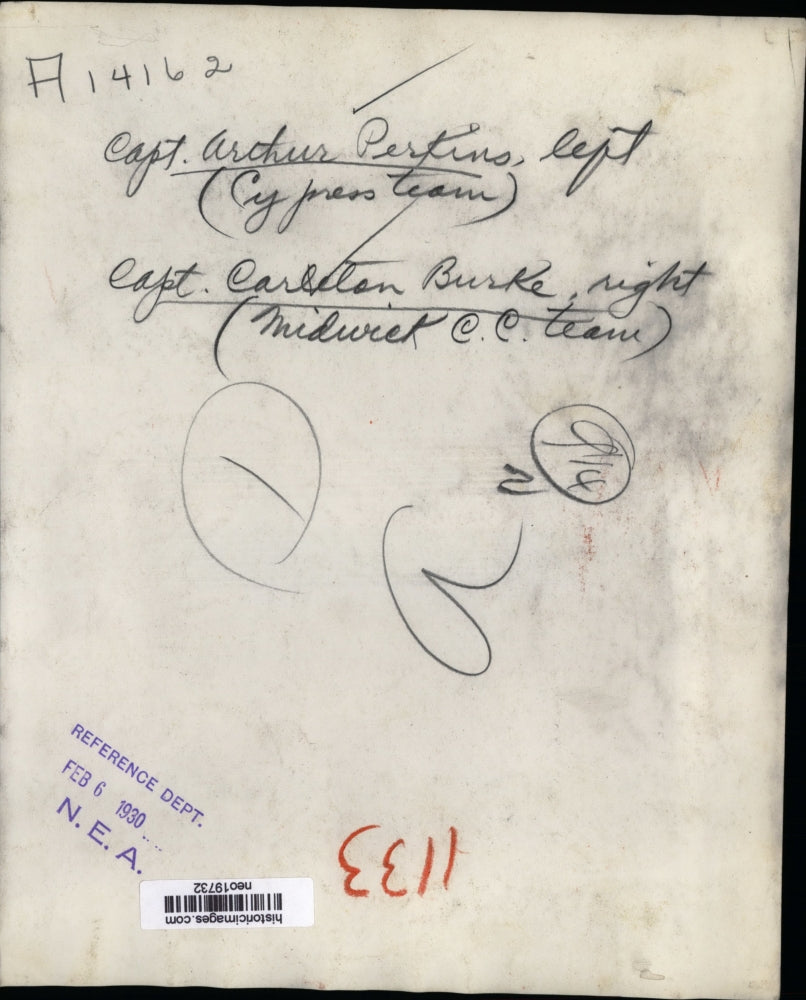 A14162
Capt. Arthur Perkins, left
(Cypress team)
Capt. Carleton Burke, right
(Midwick C.C. team)
REFERENCE DEPT.
FEB 6 1930
N. E. A.
1133
historicimages.com
neo19732